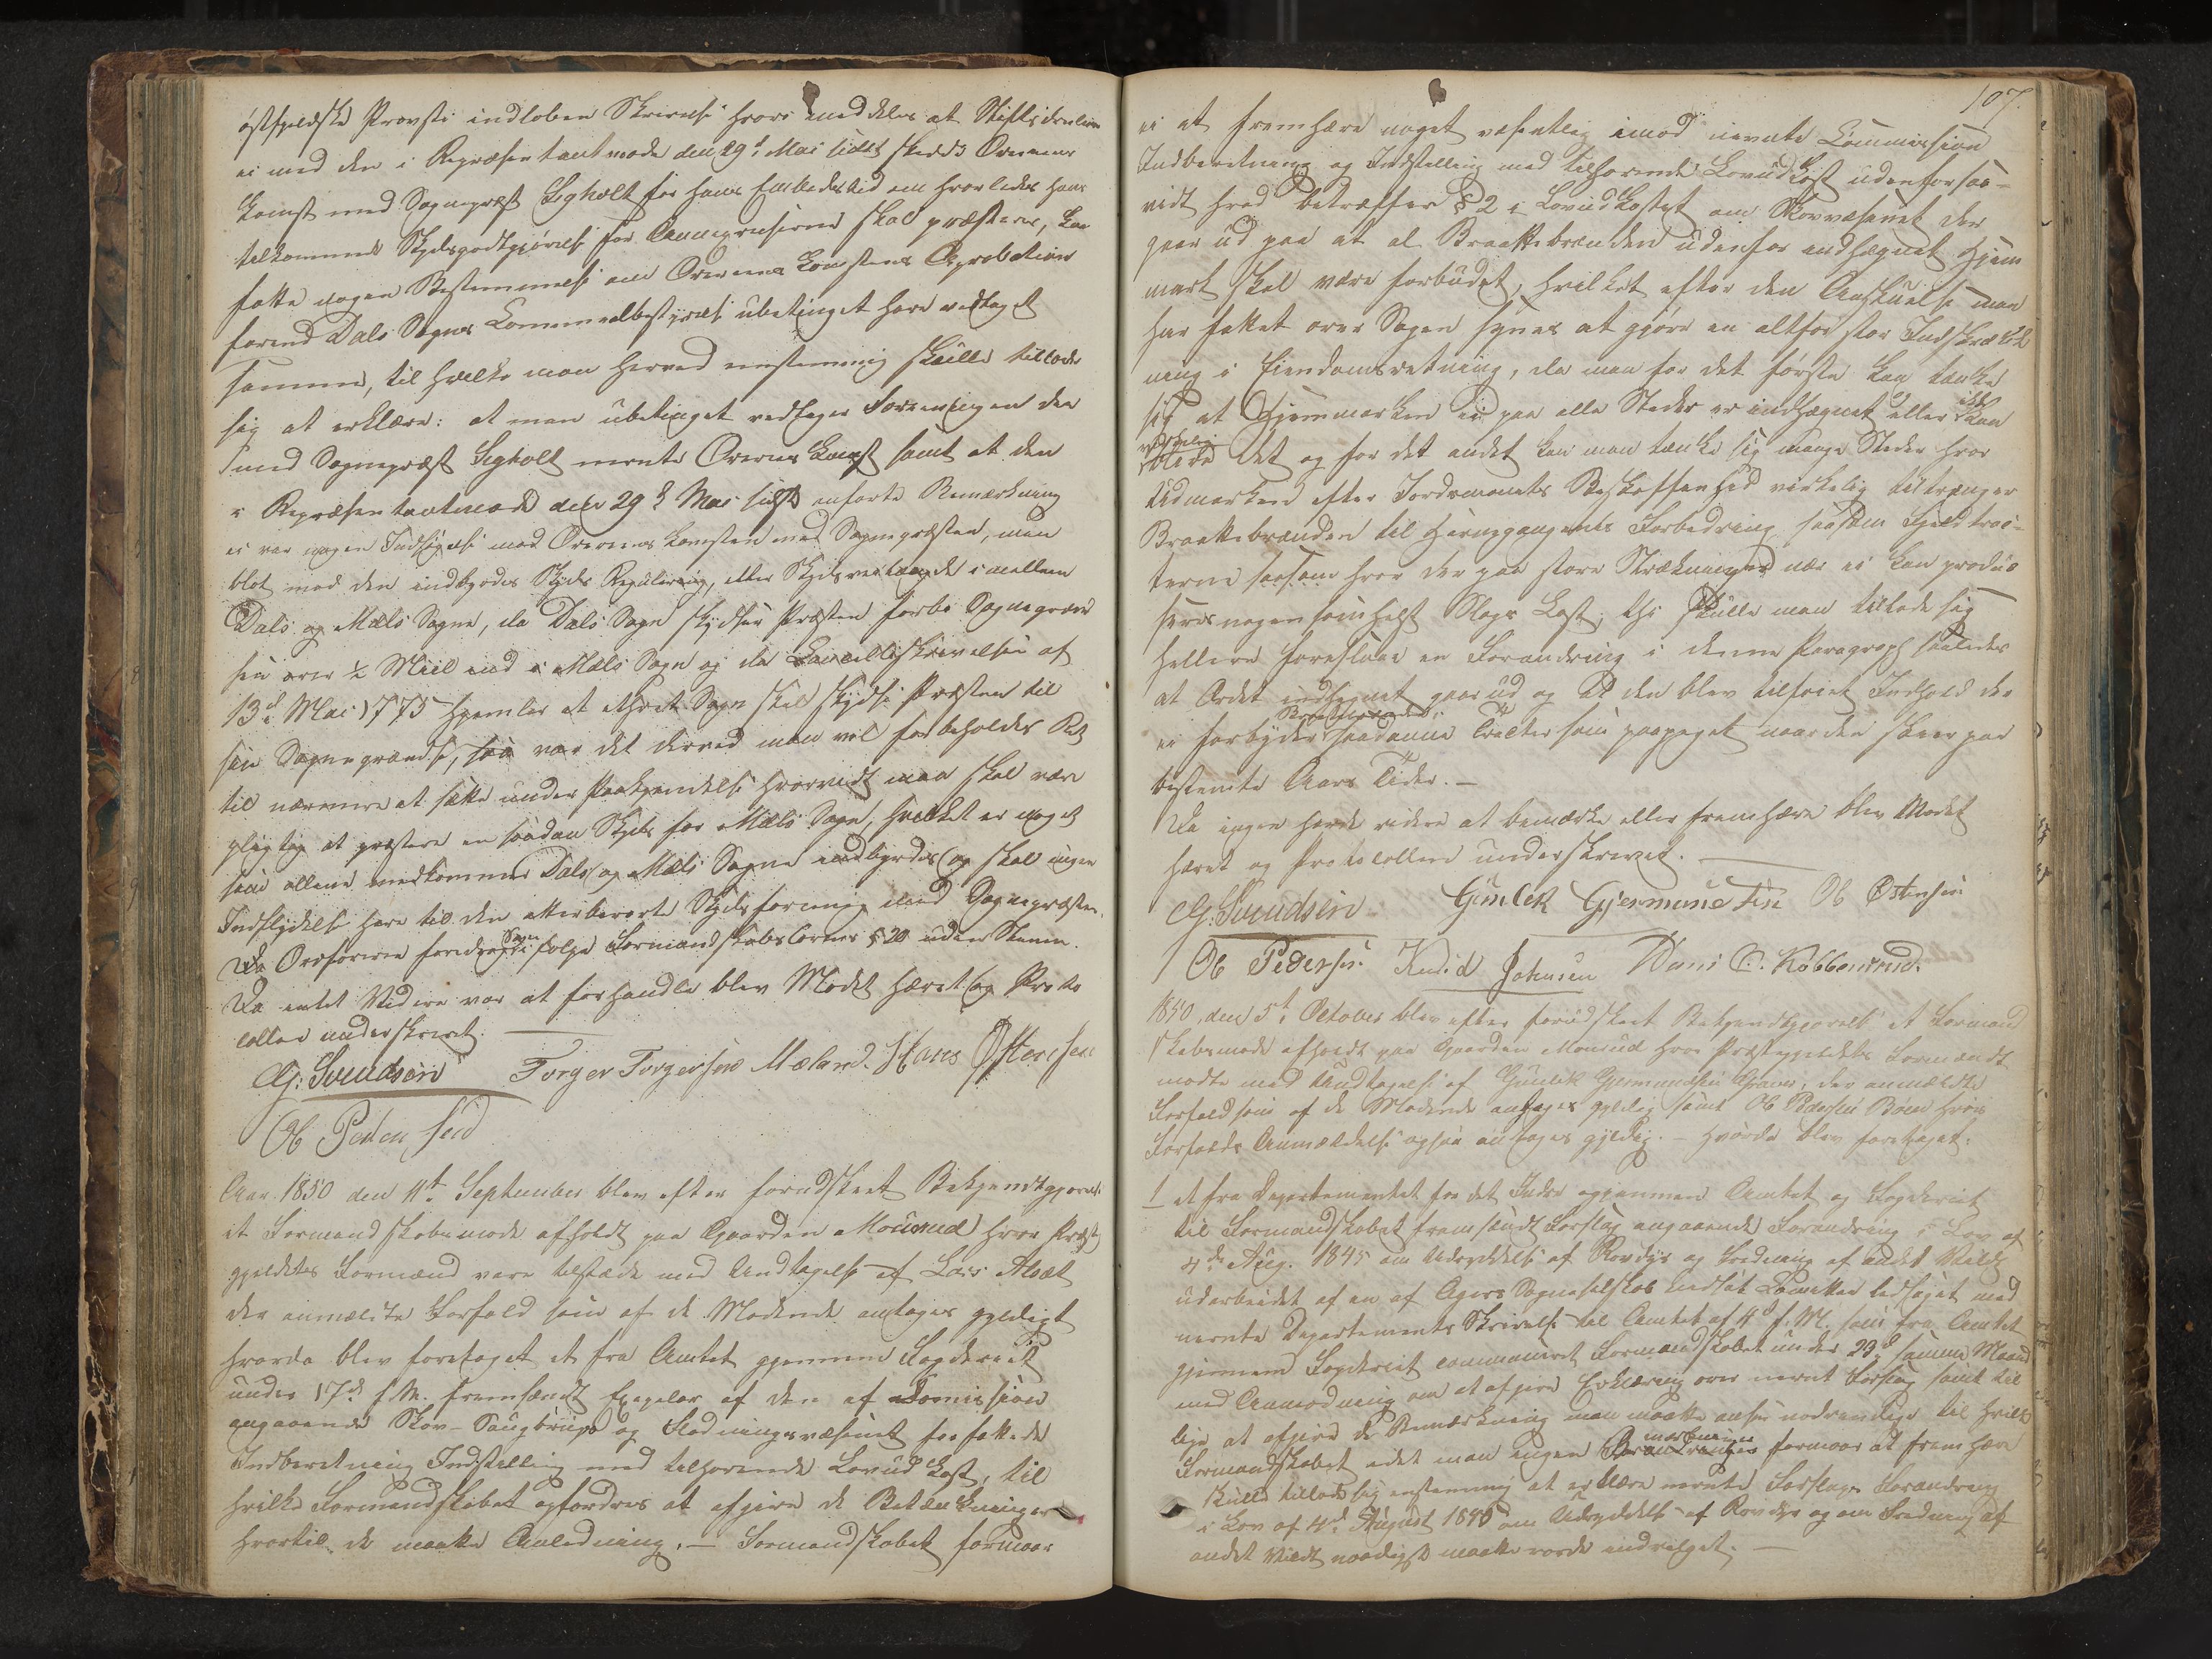 østfjeldske Provsti indløben Skrivelse hvori meddeles at Stiftsdirectionen
ei med den i Repræsentantmøde den 29d Mai sidst skedde Overeens
komst med Sognepræst Sigholt for hans Embedstid om hvorledes hans
tilkommende Skydsgodtgjørelse for Annexreiserne skal præsteres, kan
fatte nogen Bestemmelse om Overeenskomstens Aprobation
forend Dals Sogns Communalbestyrelse ubetinget have vedtaget
samme, til hvilke man herved eenstemmig skulle tillade
sig at erklære: at man ubetinget vedtager Foreningen den
med Sognepræst Sigholt nevnte Overeenskomst samt at den
i Repræsentantmøde den 29d Mai sidst anførte Bemærkning
ei var nogen Indsigelse mod Overeenskomsten med Sognepræsten, men
blot mod den indbyrdes Skyds Regulering, eller Skydsvæsende imellem
Dals og Mæls Sogne, da Dals Sogn skydser Præsten forbi Sognegrænd
sen over ½ Miil ind i Mæls Sogn og da Cancelliskrivelsen af
13d Mai 1775 hjemler at ethvert Sogn skal skydse Præsten til
sin Sognegrændse, saa var det derved man vil forbeholdes Ret
til nærmere at sætte under Paakjendelse hvorvidt man skal være
pligtig at præstere en saadan Skyds for Mæls Sogn, hvilket er noget
som allene vedkommer Dals og Mæls Sogne indbyrdes og skal ingen
Indflydelse have til den atterberørte Skydsforening med Sognepræsten.
Da Ordføreren foredrog Sagen i følge Formandskabslovens § 20 uden Stemme.
Da intet Videre var at forhandle blev Mødet hævet og Proto
collen underskrevet.
G: Svendsen Torger Torgersen Mæland. Hans Østensen
Ole Pedersen
Aar 1850 den 11te September blev efter forudskeet Bekjendtgjørelse
et Formandskabsmøde afholdt paa Gaarden Mousrud hvor Præste
gjeldets Formænd vare tilstæde med Undtagelse af Lars
der anmældte Forfald som af de Mødende antages gyldigt
hvorda blev foretaget et fra Amtet gjennem Fogderiet
under 17d f. M. fremsendt Exeplar af den af Comission
angaaende Skov- Saugbrugs og Flødningsvæsenet forfattede
Indberetning Indstilling med tilhørende Lovudkast, til
hvilke Formandskabet opfordres at afgive de Betænkninger
hvortil de maatte Anledning. — Formandskabet formaar
107.
ei at fremhæve noget væsentlig imod nevnte Commission
Indberetning og Indstilling med tilhørende Lovudkast udenforsaa-
vidt hvad betræffer § 2 i Lovudkastet om Skovvæsenet der
gaar ud paa at al Braattebrænden udenfor indhægnet Hjem
mark skal være forbudet, hvilket efter den Anskuelse man
har fattet over Sagen synes at gjøre en altfor stor Indskrænk
ning i Eiendomsretning, da man for det første kan tænke
sig at Hjemmarken ei paa alle Steder er indhægnet eller ikke kan
blive det og for det andet kan man tænke sig mange Steder hvor
Udmarken efter Jordsmonets Beskaffenhed virkelig tiltrænger
Braattebrænden til Havnegangens Forbedring saasom Fjeldtrac-
terne saasom hvor der paa store Strækninger nær ei kan produ
seres nogensomhelst Slags Last; thi skulle man tillade sig
hellere foreslaae en Forandring i denne Paragraph saaledes
at Ordet indhegnet gaar ud og at den blev tilføiet Indhold der
ei forbyder Braattebrænden i saadanne Tracter som paapeget naar den skeer paa
bestemte Aars Tider. —
Da ingen havde videre at bemærke eller fremhæve blev Mødet
hævet og Protocollen underskrevet. —
G. Svendsen Gunlek Gjermundsen Ole Østensen
Ole Pedersen Knud Johnsen Hans C. Kobbervud.
1850, den 5t October blev efter forudskeet Bekjendtgjørelse et Formand
skabsmøde afholdt paa Gaarden Mousrud hvor Præstegjeldets Formændt
mødte med Undtagelse af Gunlek Gjermundsen, der anmældte
Forfald som af de Mødende antages gyldig samt Ole Pedersen Bøen hvis
Forfalds Anmældelse ogsaa antages gyldig. — Hvorda blev foretaget:
1 et fra Departementet for det Indre igjennem Amtet og Fogderiet
til Formandskabet fremsendt Forslag angaaende Forandring i Lov af
4de Aug. 1845 om Udryddelse af Rovdyr og Fredning af andet Vildt
udarbeidet af en af Agers Sogneselskab nedsat Commitee ledsaget med
nevnte Departements Skrivelse til Amtet af 4d f. M. som fra Amtet
gjennem Fogderiet communiceret Formandskabet under 23d samme Maaned
med Anmodning om at afgive Erklæring over nevnt Forslag samt til
lige at afgive de Bemærkning man maatte ansee nødvendige til hvilket
Formandskabet idet man ingen formaar at fremhæve
skulle tillade sig enstemmig at erklære nevnte Forslags Forandring
i Lov af 4d August 1845 om Udryddelse af Rovdyr og om Fredning af
andet Vildt naadigst maatte vorde indvilget. —